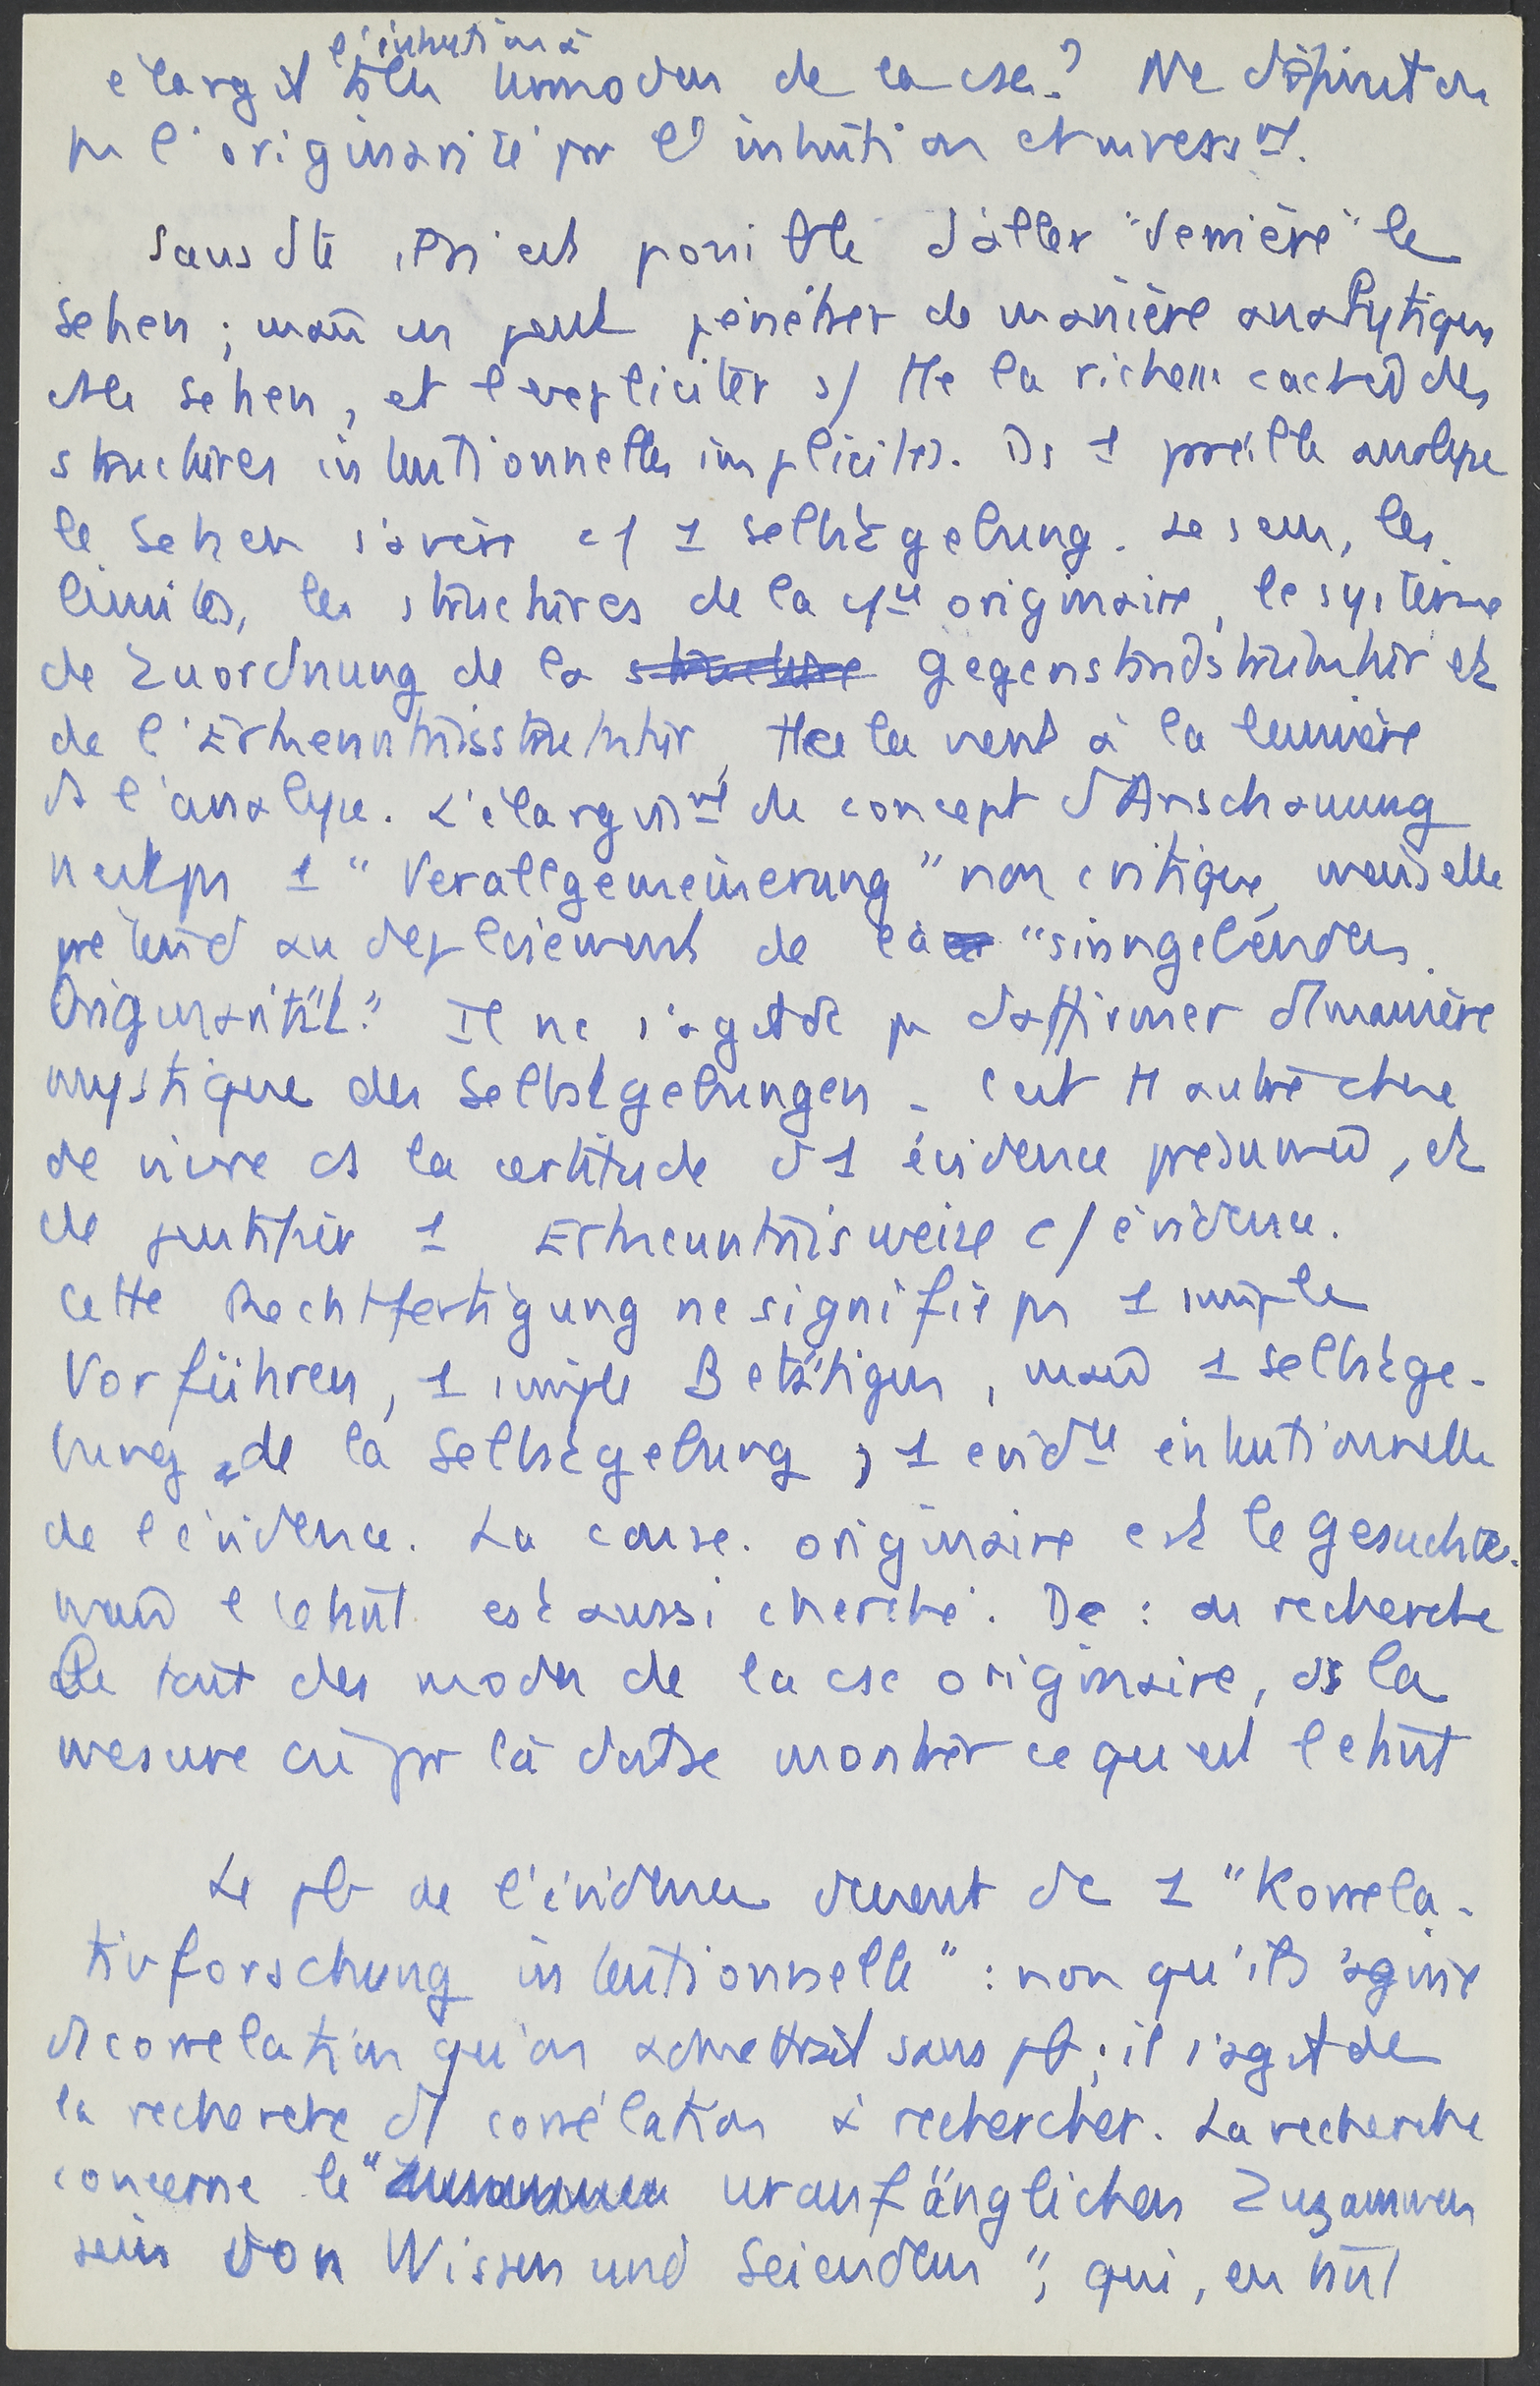 l'intuition à
élargit tous les modes de la csce? Ne définit on
pas l'originarité par l'intuition et invers^nt.
Sans dte il n'est possible d'aller "derrière" le
Sehen ; mais on peut pénétrer de manière analytique
ds le Sehen, et l'expliciter s/ tte la richesse cachée des
structures intentionnelles implicites. Ds 1 pareille analyse
le Sehen s'avère c/ 1 Selbstgebung. Le sens, les
limites, les structures de la c/ce originaire, le système
de Zuordnung de la Gegenstandsstruktur et
de l'Erkenntnisstruktur, tt cela vient à la lumière
ds l'analyse. L'élargiss^nt du concept d'Anschauung
n'est pas 1 "Verallgemeinerung" non critique, mais elle
prétend au déploiement de la "sinngebenden
Originarität." Il ne s'agit dc pas d'affirmer d'1 manière
mystique des Selbstgebungen - c'est tt autre chose
de vivre ds la certitude d'1 évidence présumée, et
de justifier 1 Erkenntnisweise c/ évidence.
Cette Rechtfertigung ne signifie pas 1 simple
Vorführen, 1 simple Betätigen, mais 1 Selbstge-
bung de la Selbstgebung ; 1 évid^ce intentionnelle
de l'évidence. La csce originaire est le Gesuchte.
mais l'étant est aussi cherché. De : on recherche
le tout des modes de la csc originaire, ds la
mesure où par là doit se montrer ce qu'est l'étant
Le pb de l'évidence devient dc 1 "Korrela-
tivforschung intentionnelle" : non qu'il s'agisse
d'1 corrélation qu'on admettrait sans pb ; il s'agit de
la recherche d'1 corrélation à rechercher. La recherche
concerne le " uranfänglichen Zusammen
sein von Wissen und Seiendem", qui, en tant